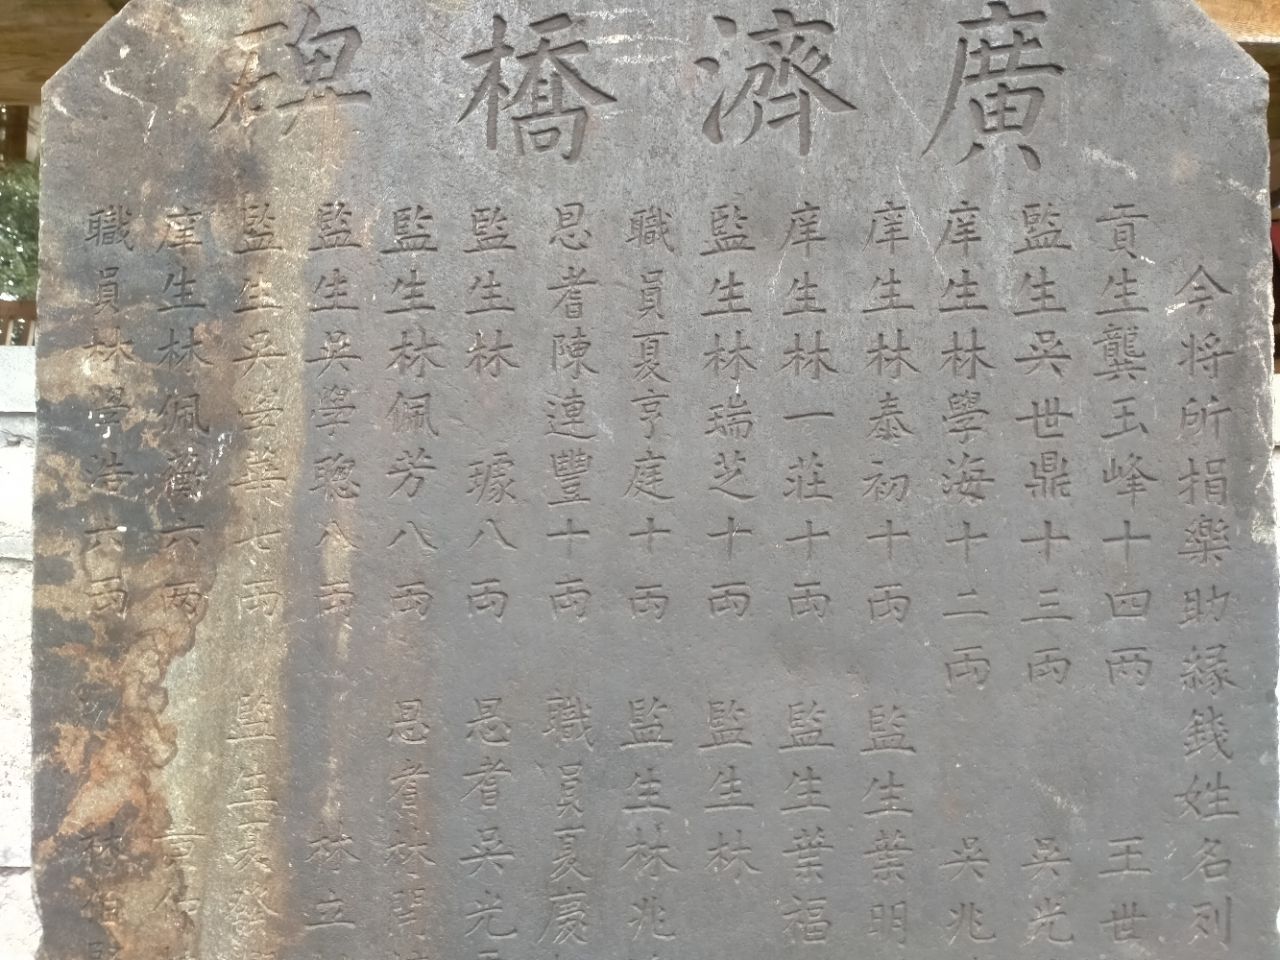 廣濟橋碑
今将所捐樂助縁錢姓名列
貢生龔玉峰十四两 王世
監生吳世鼎十三两 吳光
庠生林學海十二两 吳兆
庠生林泰初十两 監生葉明
庠生林一莊十两 監生葉福
監生林瑞芝十两 監生林
職員夏亨庭十两 監生林兆
恩耆陳連豐十两 職員夏慶
監生林璩八两 恩耆吳光
監生林佩芳八两 恩耆林開
監生吳學聰八两 林立
監生吳學華七两 監生夏發
庠生林佩蘅六两
職員林學浩六两 林